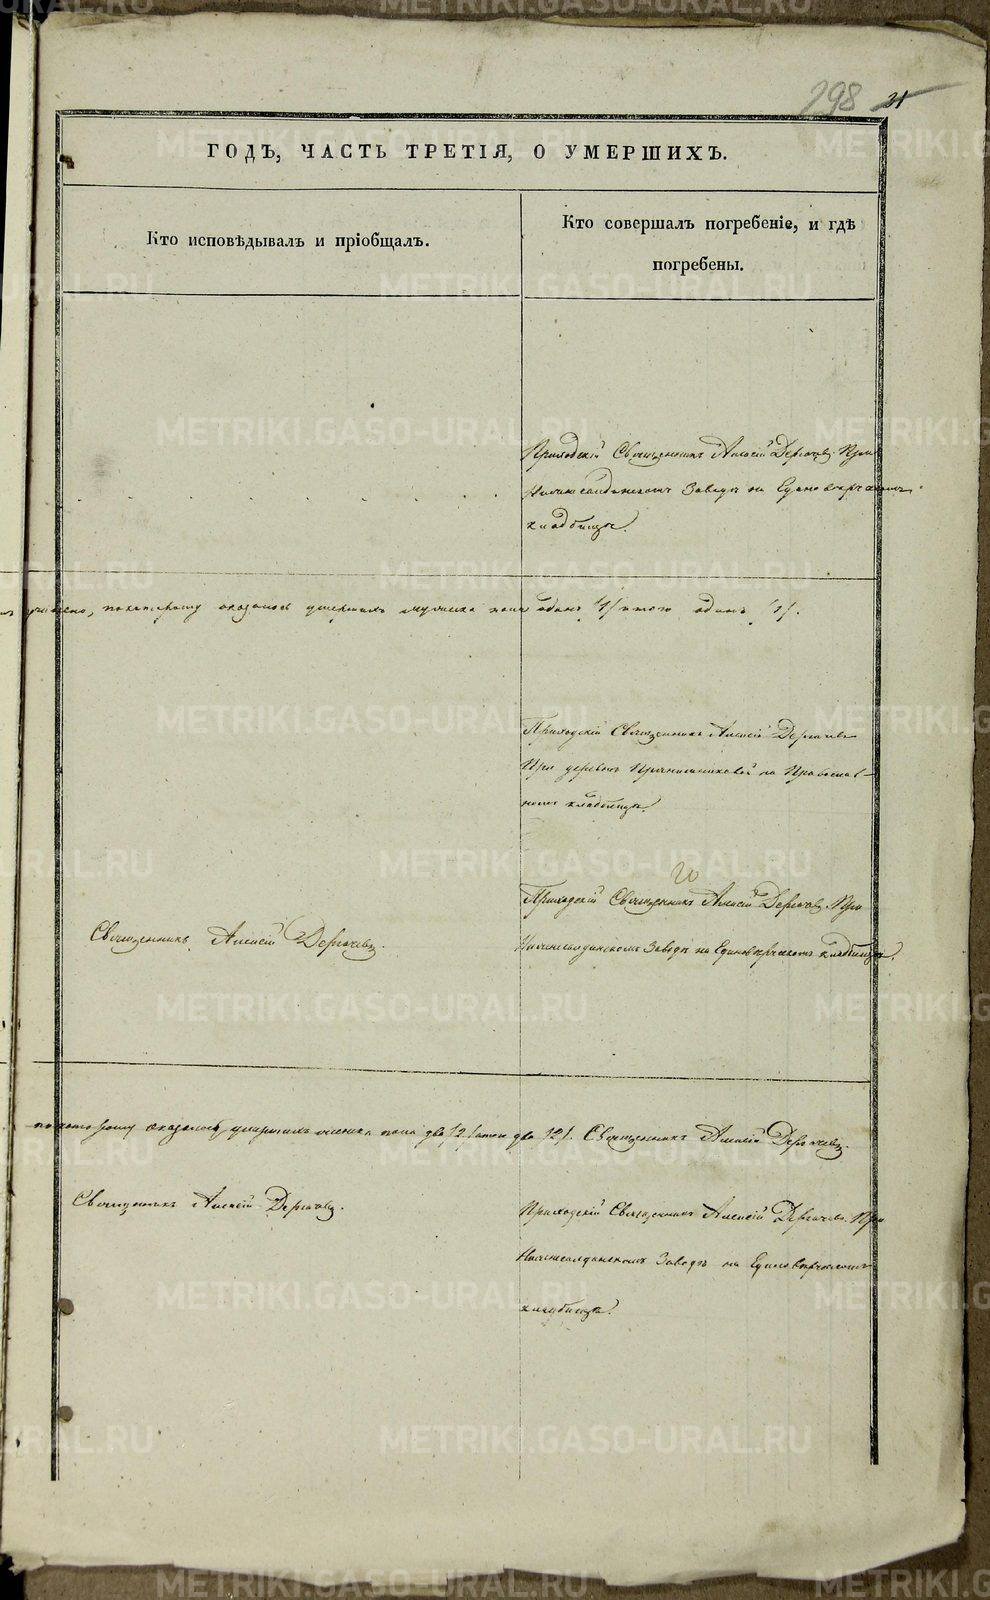 298 21
ГОДЪ, ЧАСТЬ ТРЕТІЯ, О УМЕРШИХЪ.
Кто исповѣдывалъ и пріобщалъ.
Кто совершалъ погребеніе, и гдѣ
погребены.
Приходскій Священникъ Алексій Дергачевъ. При
Нижнесалдинскомъ Заводѣ на Единовѣрческомъ
кладбищѣ.
покоторому оказалось умершихъ мужска пола одинъ /1/ итого одинъ /1/.
Приходскій Священникъ Алексій Дергачевъ
При деревнѣ на Православ-
номъ кладбищѣ.
20
Приходскій Священникъ Алексій Дергачевъ. При
Священникъ Алексій Дергачевъ.
Нижнесалдинскомъ Заводѣ на Единовѣрческомъ кладбищѣ.
покоторому оказалось умершихъ пола два /2/ итого два /2/. Священникъ Алексій Дергачевъ.
Священникъ Алексій Дергачевъ.
Приходскій Священникъ Алексій Дергачевъ. При
Нижнесалдинскомъ Заводѣ на Единовѣрческомъ
кладбищѣ.
METRIKI.GASO-URAL.RU